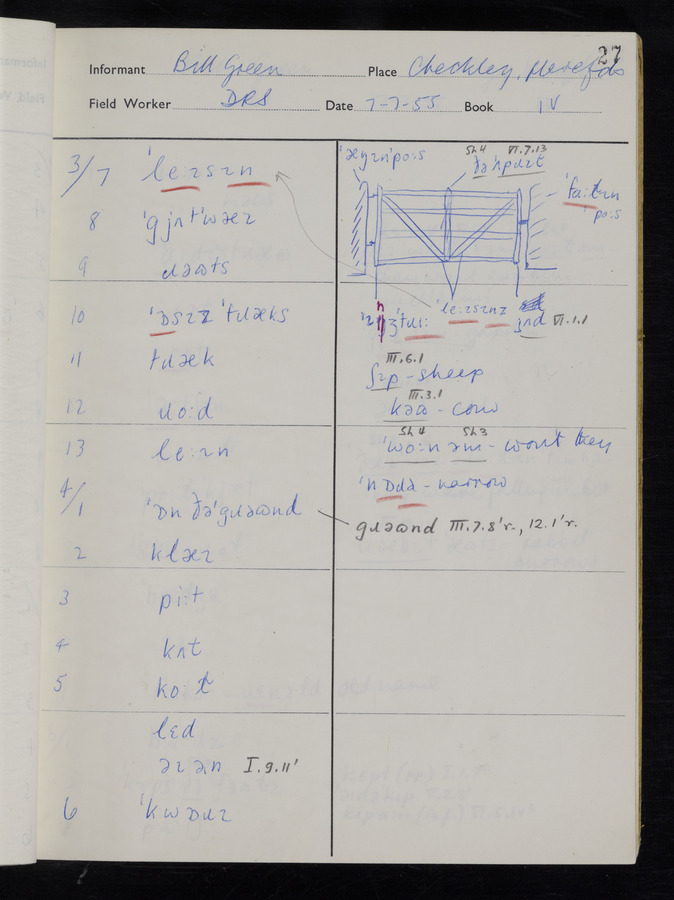 27
Informant Bill Green Place Checkley, Herefds
Field Worker DRS Date 7-7-55 Book IV
3/7 ˈleːɪsɪn
8 ˈgjʌtˈwæɪ
9 ɹəʊts
10 ˈɒsɪz ˈtɹæks
11 tɹæk
12 ɹoːd
13 leːɪn
4/1 ˈɒn ðəˈgɹəʊnd
2 klæɪ
3 piːt
4 kʌt
5 koːt
lɛd
əɪən I.9.11'
6 ˈkwɒɹɪ
Sh.4 VI.7.13
ˈleːɪsɪnz
jɛd VI.1.1
III.6.1
ʃɪp - sheep
III.3.1
kəʊ - cow
Sh.4 Sh.3
ˈwoːn əm - won't they
ˈnɒɹə - narrow
gɹəʊnd III.7.8'r., 12.1'r.